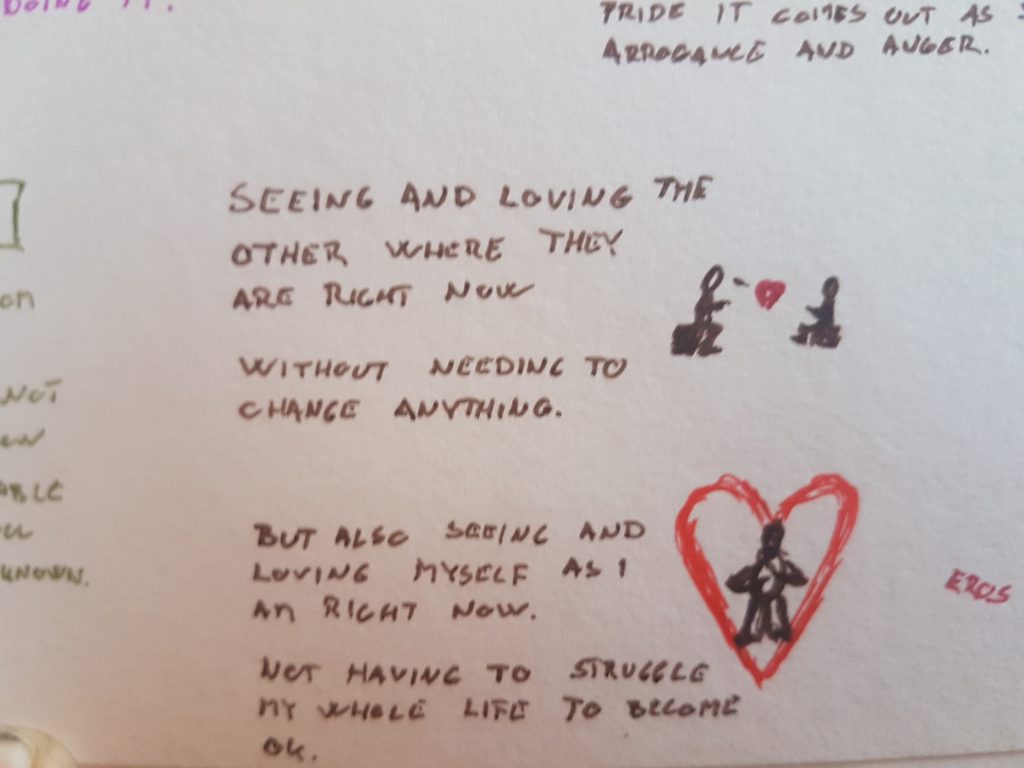 DOING IT.
PRIDE IT COMES OUT AS
ARROGANCE AND ANGER.
SEEING AND LOVING THE
OTHER WHERE THEY
ARE RIGHT NOW
WITHOUT NEEDING TO
CHANGE ANYTHING.
BUT ALSO SEEING AND
LOVING MYSELF AS I
AM RIGHT NOW.
NOT HAVING TO STRUGGLE
MY WHOLE LIFE TO BECOME
OK.
EROS
on
NOT
ABLE
KNOWN.